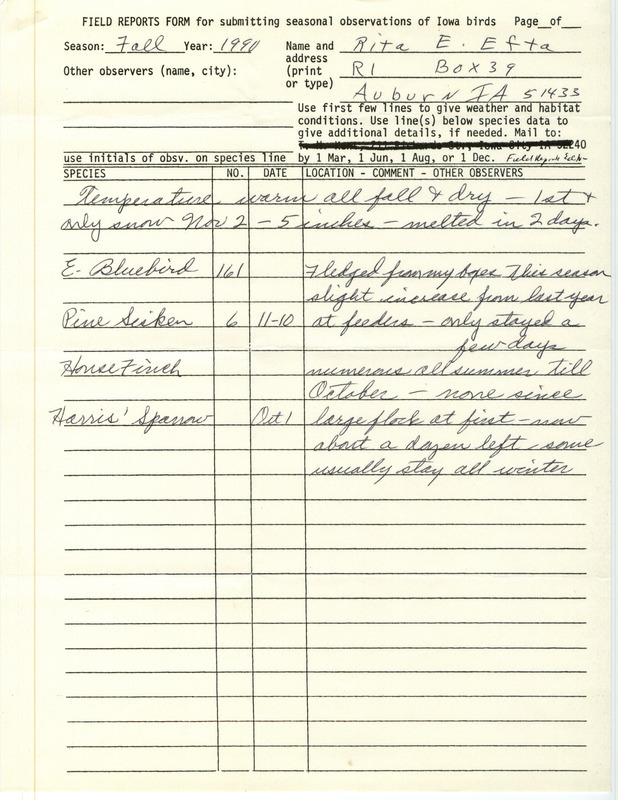 FIELD REPORTS FORM for submitting seasonal observations of Iowa birds Page__of__
Season: Fall Year: 1990 Name and Rita E. Efta
address
Other observers (name, city): (print R1 Box 39
or type) Auburn IA 51433
Use first few lines to give weather and habitat
conditions. Use line(s) below species data to
give additional details, if needed. Mail to:
use initials of obsv. on species line by 1 Mar, 1 Jun, 1 Aug, or 1 Dec. Field
SPECIES NO. DATE LOCATION - COMMENT - OTHER OBSERVERS
Temperature warm all fall & dry - 1st &
only snow Nov 2 - 5 inches - melted in 2 days.
E. Bluebird 161 Fledged from my boxes This season
slight increase from last year
Pine Sisken 6 11-10 at feeders - only stayed a
few days
House Finch numerous all summer till
October - none since
Harris' Sparrow Oct 1 large flock at first - now
about a dozen left - some
usually stay all winter